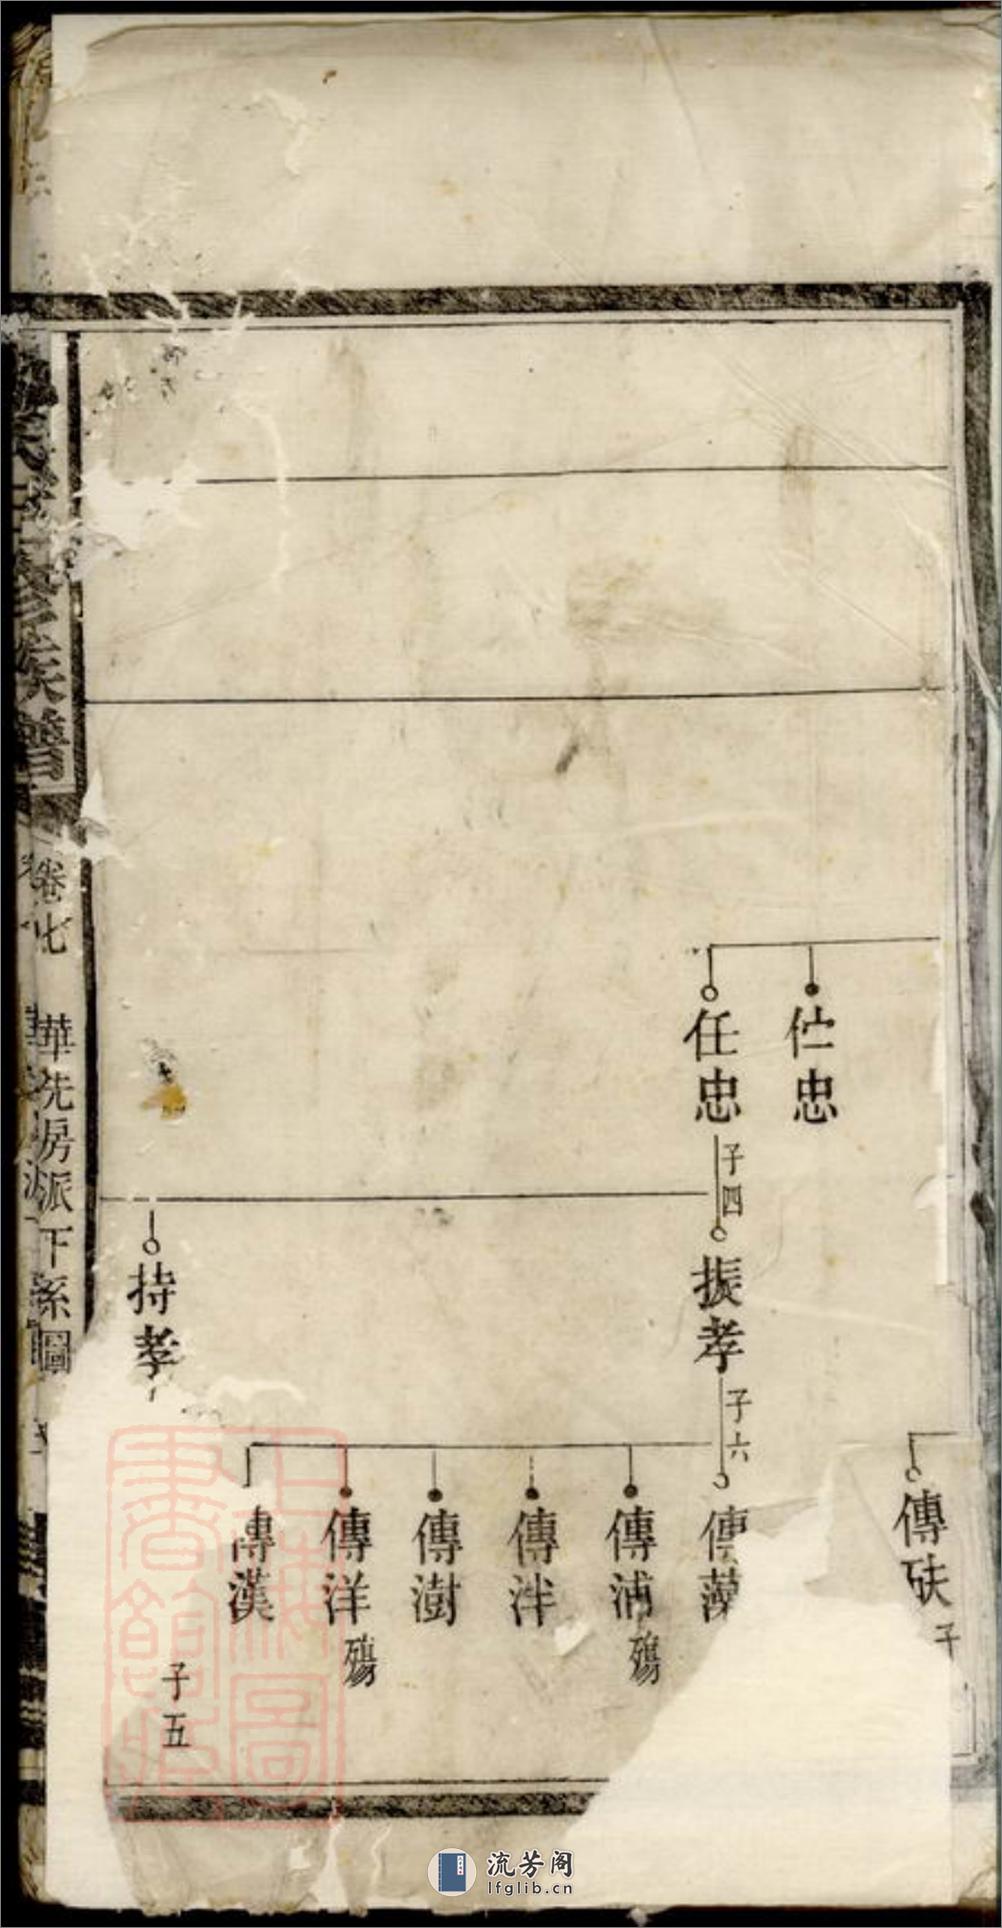 伫忠
任忠
子四
振孝
子六
持孝
傳砆
子
傳藻
傳浦
殤
傳泮
傳澍
傳洋
殤
傳漢
子五
修族譜
卷七
華先房派下系圖
上海圖書館藏
流芳阁
lfglib.cn